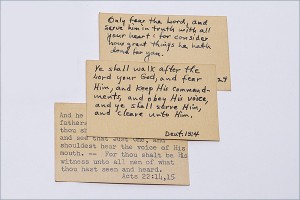 Only fear the Lord, and
serve him in truth with all
your heart: for consider
how great things he hath
done for you.
24
Ye shall walk after the
Lord your God, and fear
Him, and keep His command-
ments, and obey His voice,
and ye shall serve Him,
and cleave unto Him.
Deut. 13:4
And he
fathers
thou sh
and see that Just One, and
shouldest hear the voice of His
mouth. -- For thou shalt be His
witness unto all men of what
thou hast seen and heard.
Acts 22:14,15